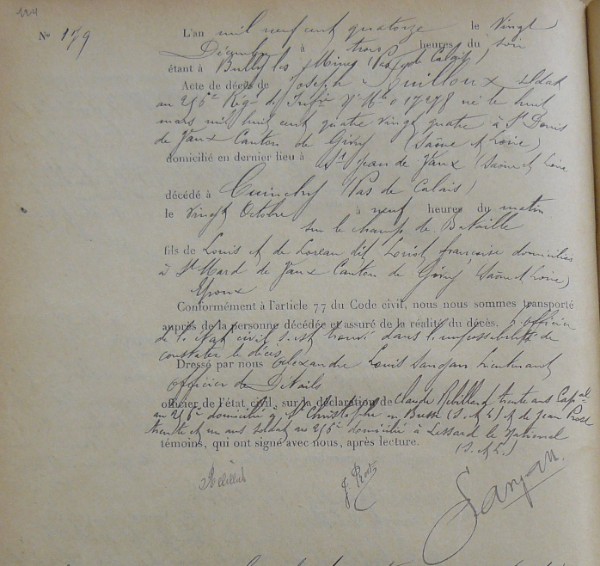 424
N° 179
L'an mil neuf cent quatorze le vingt
Décembre à trois heures du soir
étant à Bully les Mines (Pas de Calais)
Acte de décès de Joseph soldat
au 256e Rég. de Inf. né le huit
mars mil huit cent quatre vingt quatre à St Denis
de Vaux Canton de Givry (Saône et Loire)
domicilié en dernier lieu à St Jean de Vaux (Saône et Loire
décédé à Cuinchy (Pas de Calais)
le vingt Octobre à neuf heures du matin
sur le champ de Bataille
fils de Louis et de dit Louise française domiciliés
à St Mard de Vaux Canton de Givry (Saône et Loire)
Époux
Conformément à l'article 77 du Code civil, nous nous sommes transporté
auprès de la personne décédée et assuré de la réalité du décès. l'officier
de l'état civil s'est trouvé dans l'impossibilité de
constater le décès
Dressé par nous Alexandre Louis Lieutenant
officier de Détails
officier de l'état civil, sur la déclaration de Claude trente ans
au 256e domicilié à St Christophe en (S. et L) et de Jean
trente et un ans soldat au 256e domicilié à Lessard le National
(S. et L)
témoins, qui ont signé avec nous, après lecture.